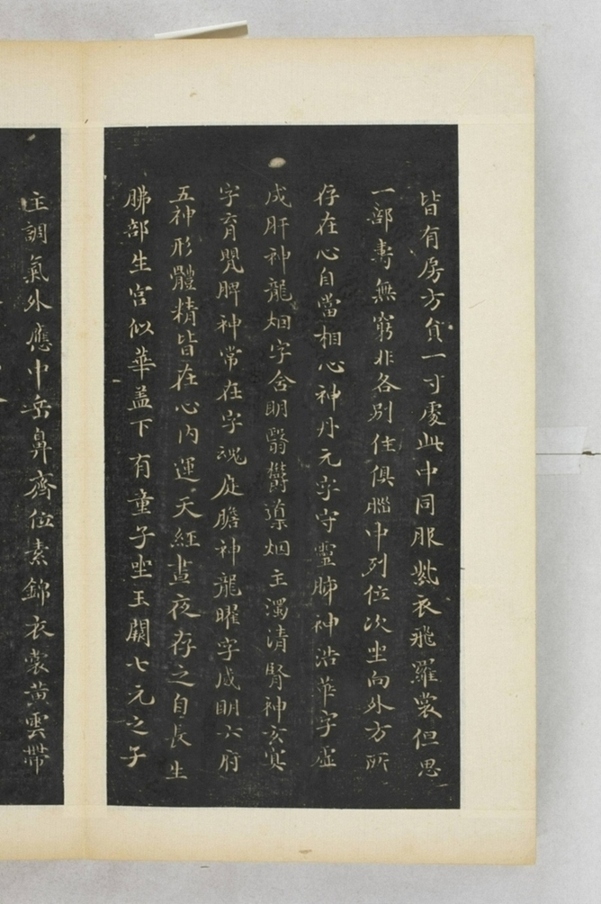 皆有房方負一寸處此中同服紫衣飛羅裳但思
一部壽無窮非各別住俱腦中列位次坐向外方所
存在心自當相心神丹元字守靈肺神浩華字虛
成肝神龍烟字含明翳鬱導烟主濁清腎神玄冥
字育嬰脾神常在字魂庭膽神龍曜字威明六府
五神形體精皆在心內運天經晝夜存之自長生
肺部生宮似華蓋下有童子坐玉闕七元之子
主調氣外應中岳鼻齊位素錦衣裳黃雲帶